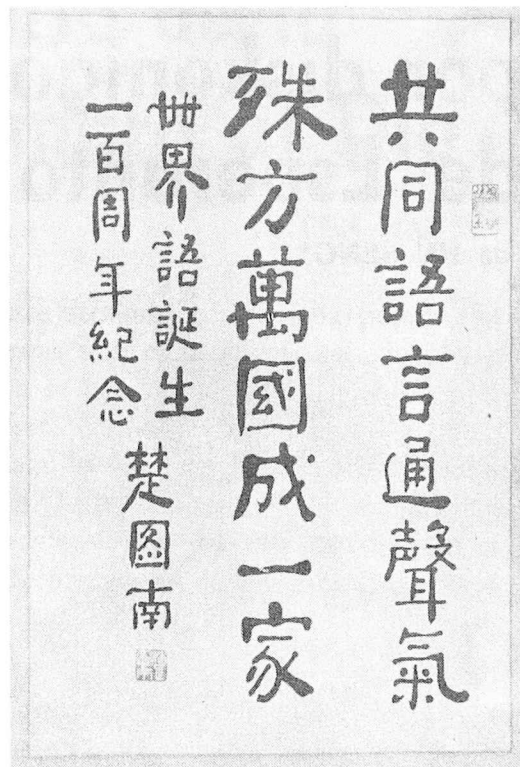 共同語言通聲氣
殊方萬國成一家
世界語誕生
一百周年紀念
楚圖南